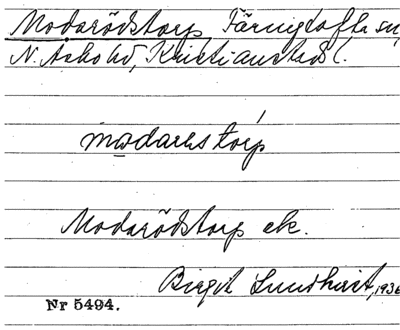 Modarödstorp Färingtofta sn,
N. Åsbo hd, Kristianstads l.
modarestórp
Modarödstorp ek.
Birgit Lundkvist, 1936
Nr 5494.